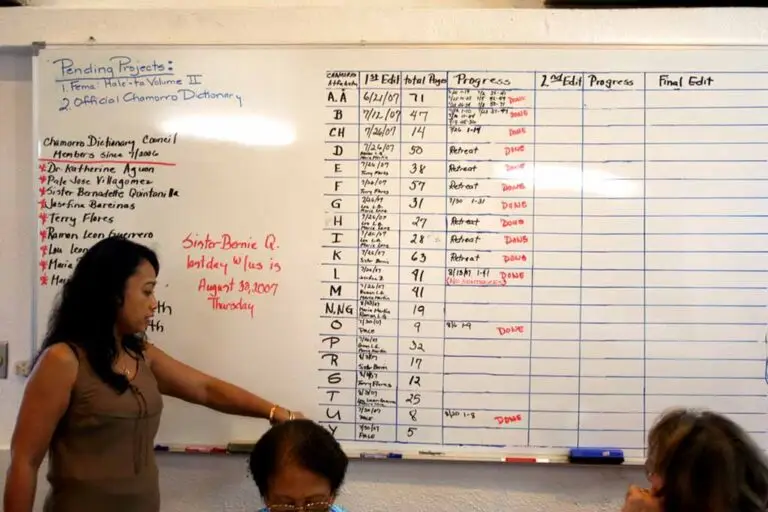 Pending Projects:
1. Fema: Hale-ta Volume II
2. Official Chamorro Dictionary
Chamorro Dictionary Council
Members since 7/2006
* Dr. Katherine Aguon
* Pale Jose Villagomez
* Sister Bernadette Quintanilla
* Josefina Barcinas
* Terry Flores
* Ramon Leon Guerrero
* Lou Leon
* Maria
* Ma
Sister Bernie Q.
last day w/us is
August 30, 2007
Thursday
th
th
Chamorro Alphabets 1st Edit total Pages Progress 2nd Edit Progress Final Edit
A, Å 6/21/07 71 DONE
B 7/12/07 47 DONE
CH 7/26/07 14 7/26 1-14 DONE
D 7/26/07 50 Retreat DONE
E 7/26/07 Terry Flores 38 Retreat DONE
F 7/30/07 Terry Flores 57 Retreat DONE
G 31 7/30 1-31 DONE
H 27 Retreat DONE
I 28 Retreat DONE
K 7/26/07 Sister Bernie 63 Retreat DONE
L 41 8/13/07 1-41 DONE
(No sentences)
M 7/26/07 41
N, NG 19
O 7/30/07 Pale 9 8/6 1-9 DONE
P 32
R Sister Bernie 17
S Terry Flores 12
T 25
U 7/30/07 Pale 8 8/20 1-8 DONE
Y 7/30/07 Pale 5